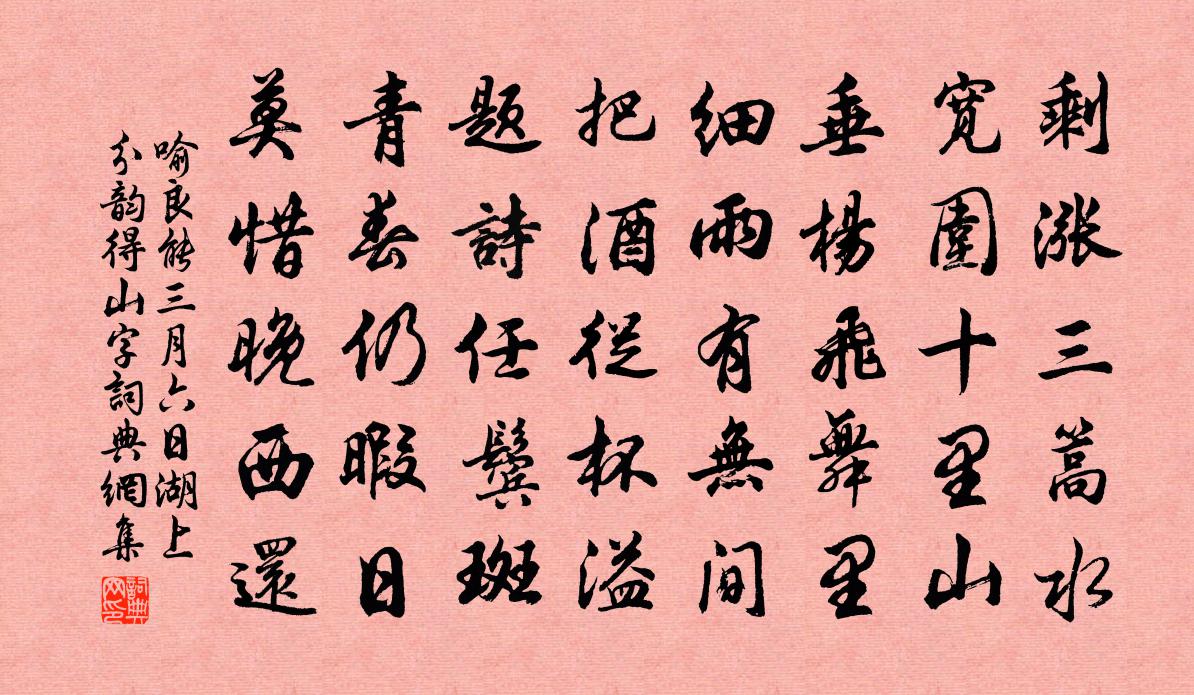 剩漲三篙水
寬圍十里山
垂楊飛舞里
細雨有無間
把酒從杯溢
題詩任鬢斑
青春仍暇日
莫惜晚西還
喻良能三月六日湖上
分韵得山字詞典網集
詞典网印